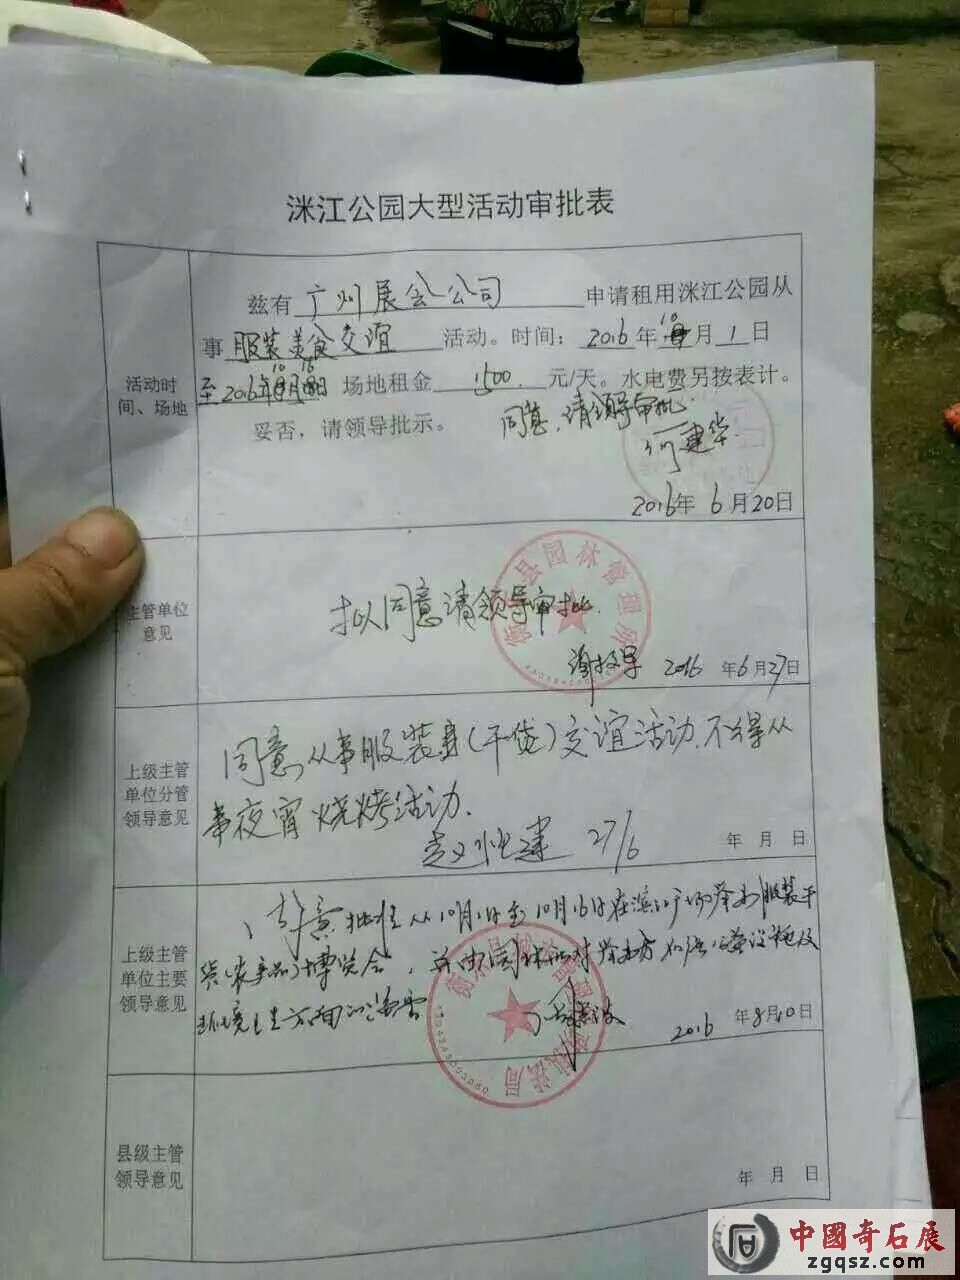 洣江公园大型活动审批表
活动时
间、场地
兹有 广州展会公司 申请租用洣江公园从
事 服装美食交谊 活动。时间：2016年10月1日
至2016年10月16日 场地租金 1500 元/天。水电费另按表计。
妥否，请领导批示。
同意，请领导审批.
何建华
2016年6月20日
主管单位
意见
拟同意请领导审批.
县园林管理所
2016年6月27日
上级主管
单位分管
领导意见
同意从事服装(干货)交谊活动.不得从
事夜宵烧烤活动.
27/6
年 月 日
上级主管
单位主要
领导意见
批准从10月1日至10月16日在滨江广场举办服装干
货农产品博览会，并由园林所对举办方
环境卫生方面的
2016年8月10日
县级主管
领导意见
年 月 日
中國奇石展
zgqsz.com